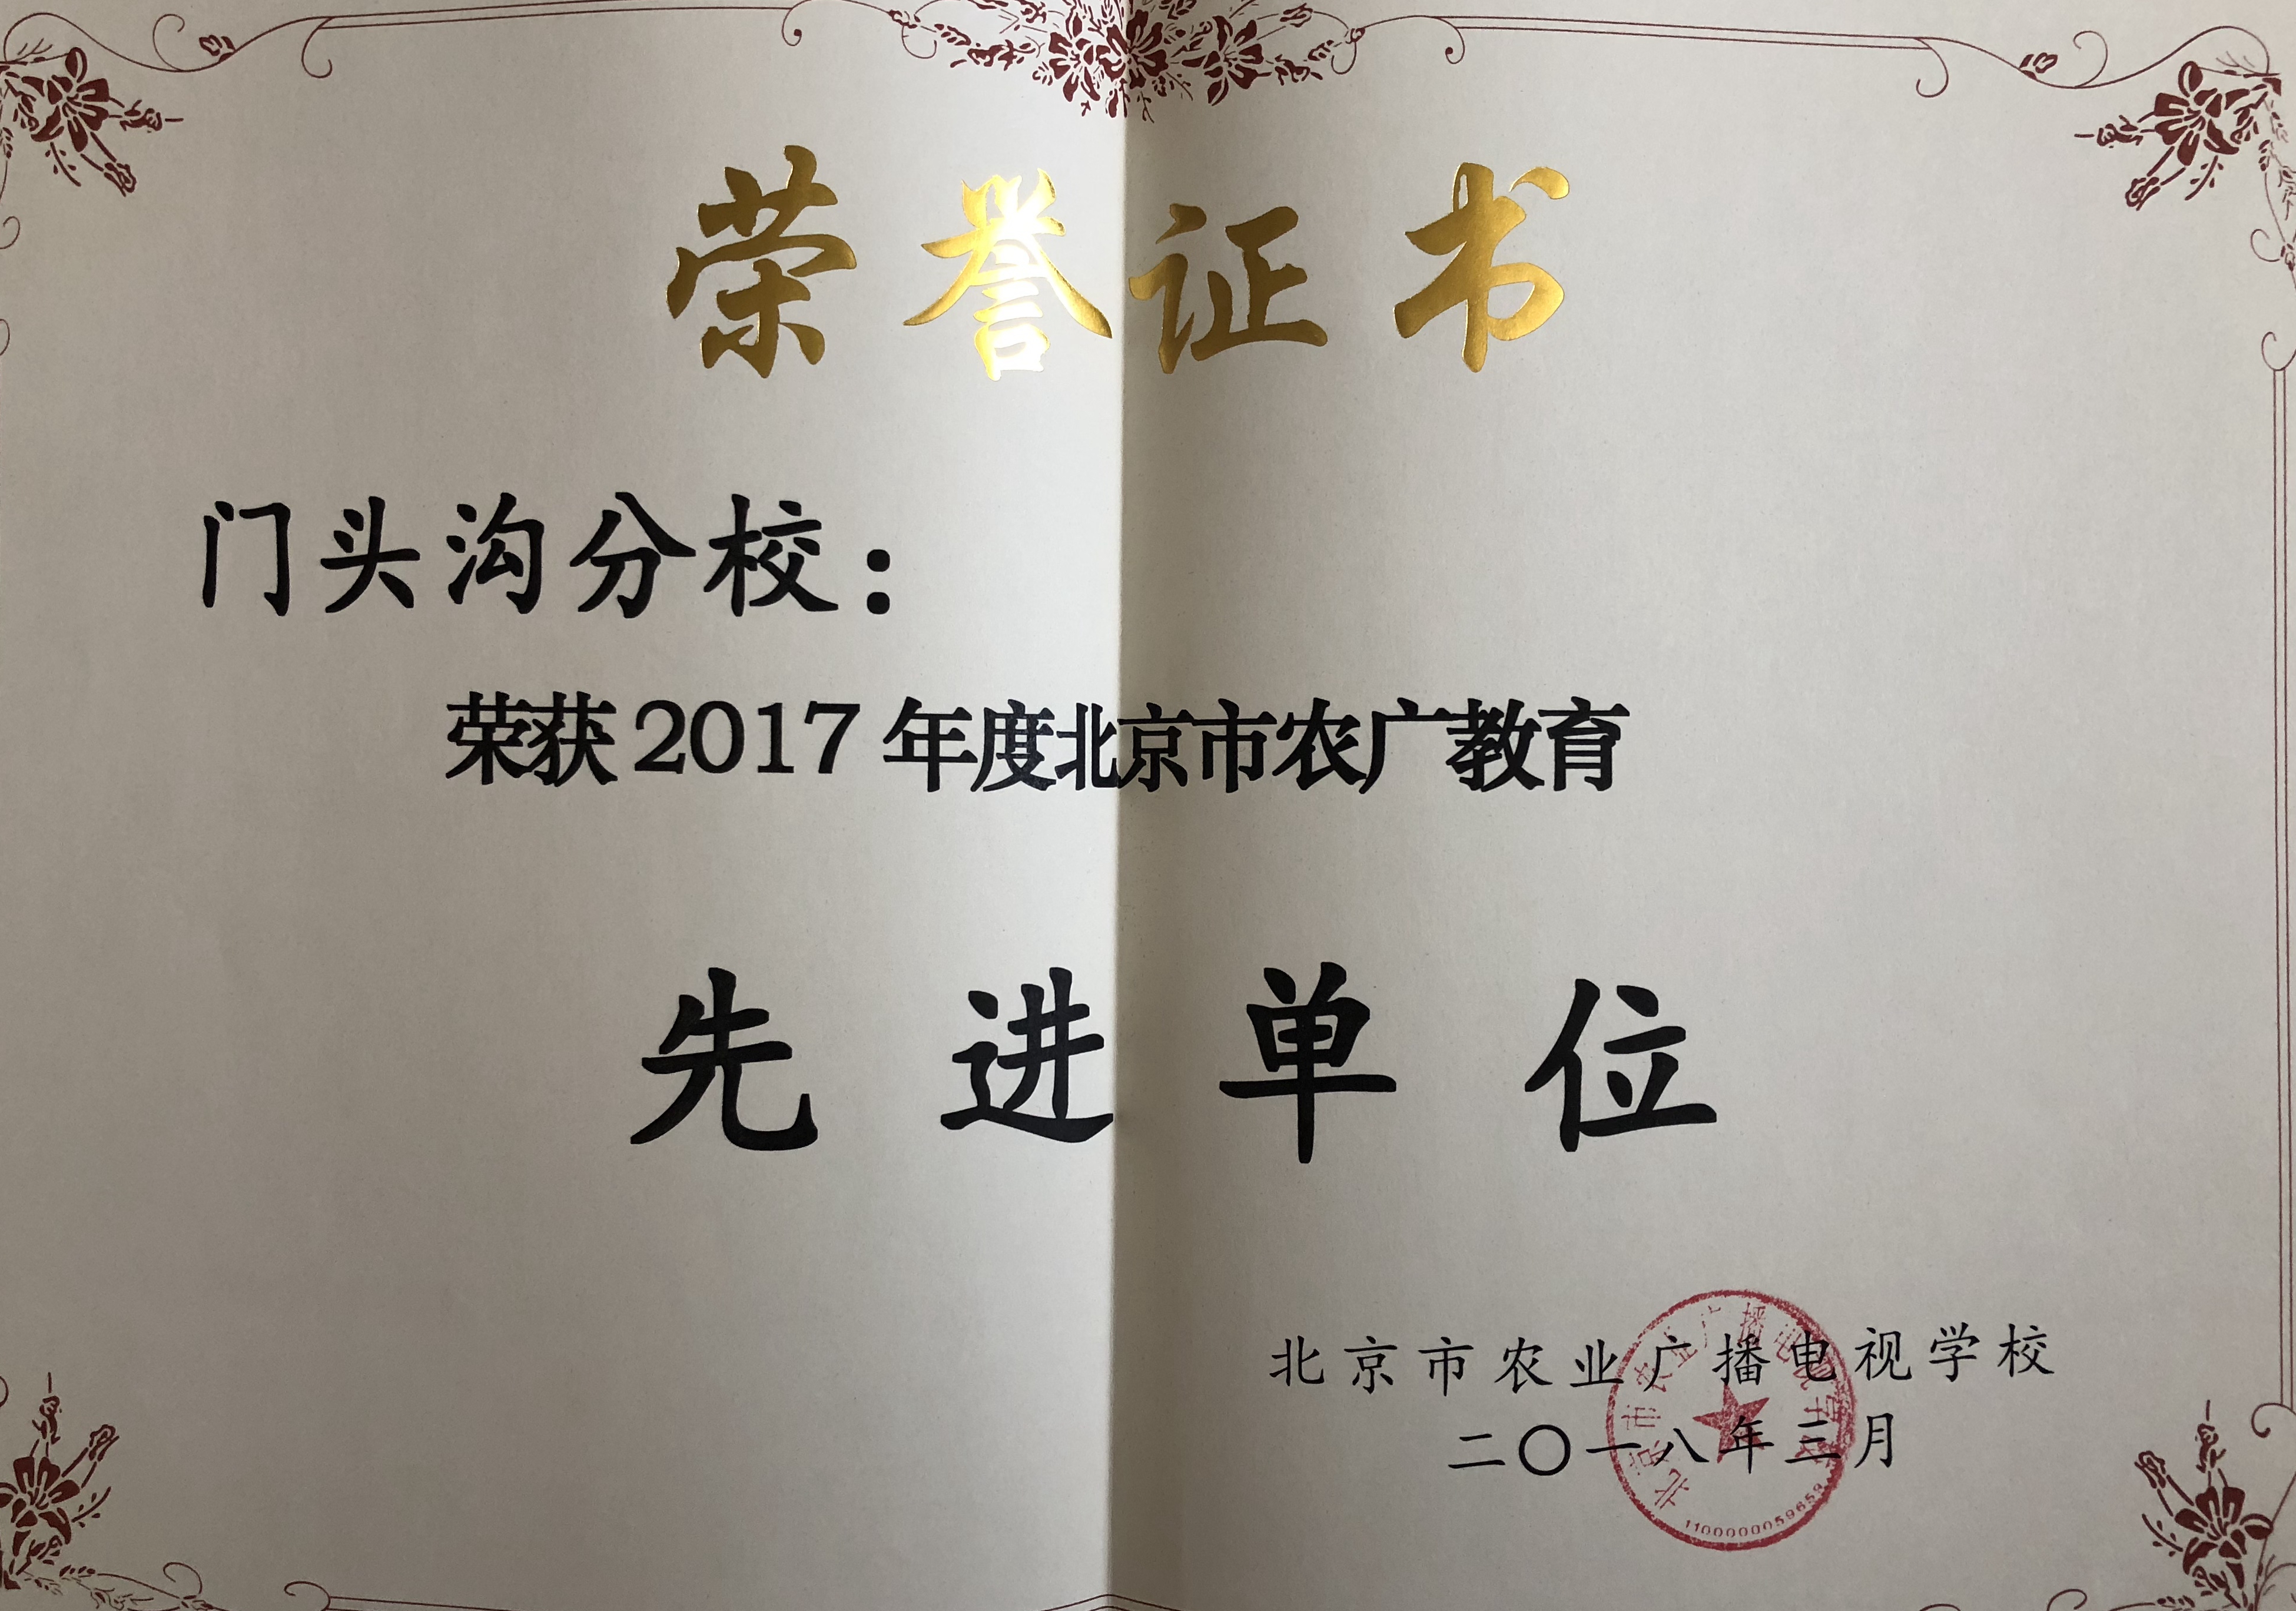 荣誉证书
门头沟分校：
荣获2017年度北京市农广教育
先进单位
北京市农业广播电视学校
二〇一八年三月
北京市农业广播电视学校
1100000059659